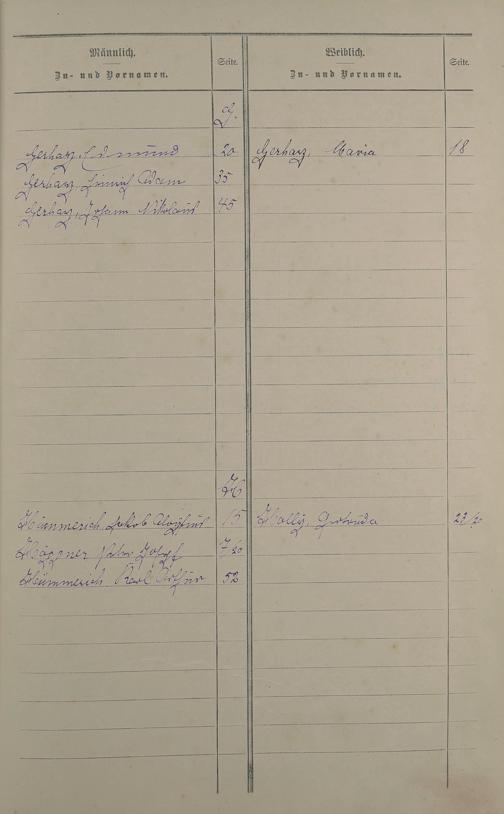 Männlich.
Zu- und Vornamen.
Seite.
Weiblich.
Zu- und Vornamen.
Seite.
G.
Gerharz, Edmund 20 Gerharz, Maria 18
Gerharz, Heinrich Adam 35
Gerharz, Johann Nikolaus 45
H
Hümmerich, Jakob Aloysius 15 Gertruda
Peter Josef
Hümmerich Karl Arthur 52